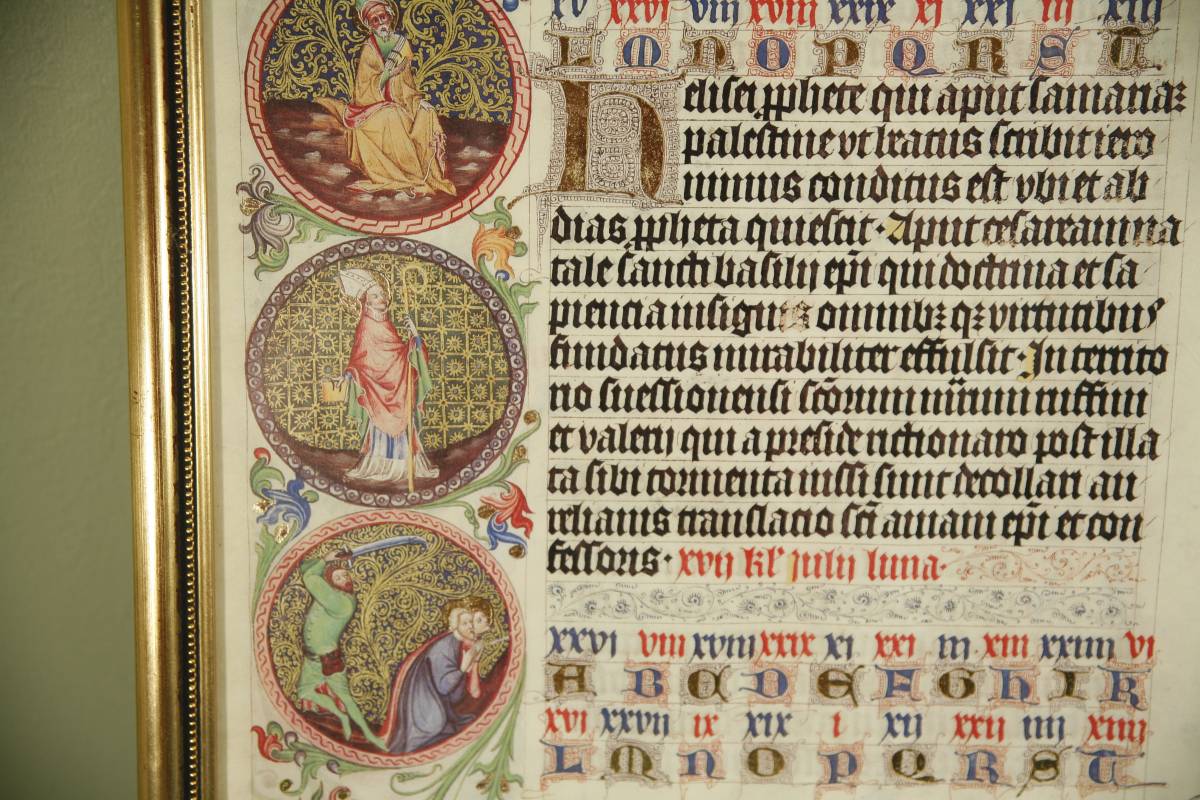 xv xxvi viii xviii xxix xi xxi iii xiii
L M N O P Q R S T
Helisei pphete qui aput samariaz
palestine vt beatus scribit iero
nimus conditus est vbi et ab
dias ppheta quiescit · Aput cesaream na
tale sancti basilij epi qui doctrina et sa
piencia insignis omnibz qz virtutibus
fundatus mirabiliter effulsit · In territo
rio suessionensi scorum mrum ruffini
et valerij qui a preside rictionaro post illa
ta sibi tormenta iussi sunt decollari au
relianis translacio sci aniani epi et con
fessoris · xvij kl' julij luna·
xxvi viii xviii xxix xi xxi iii xiii xxiiii vi
A B C D E F G H I K
xvi xxvii ix xix i xii xxii iiii xiiii
L M N O P Q R S T